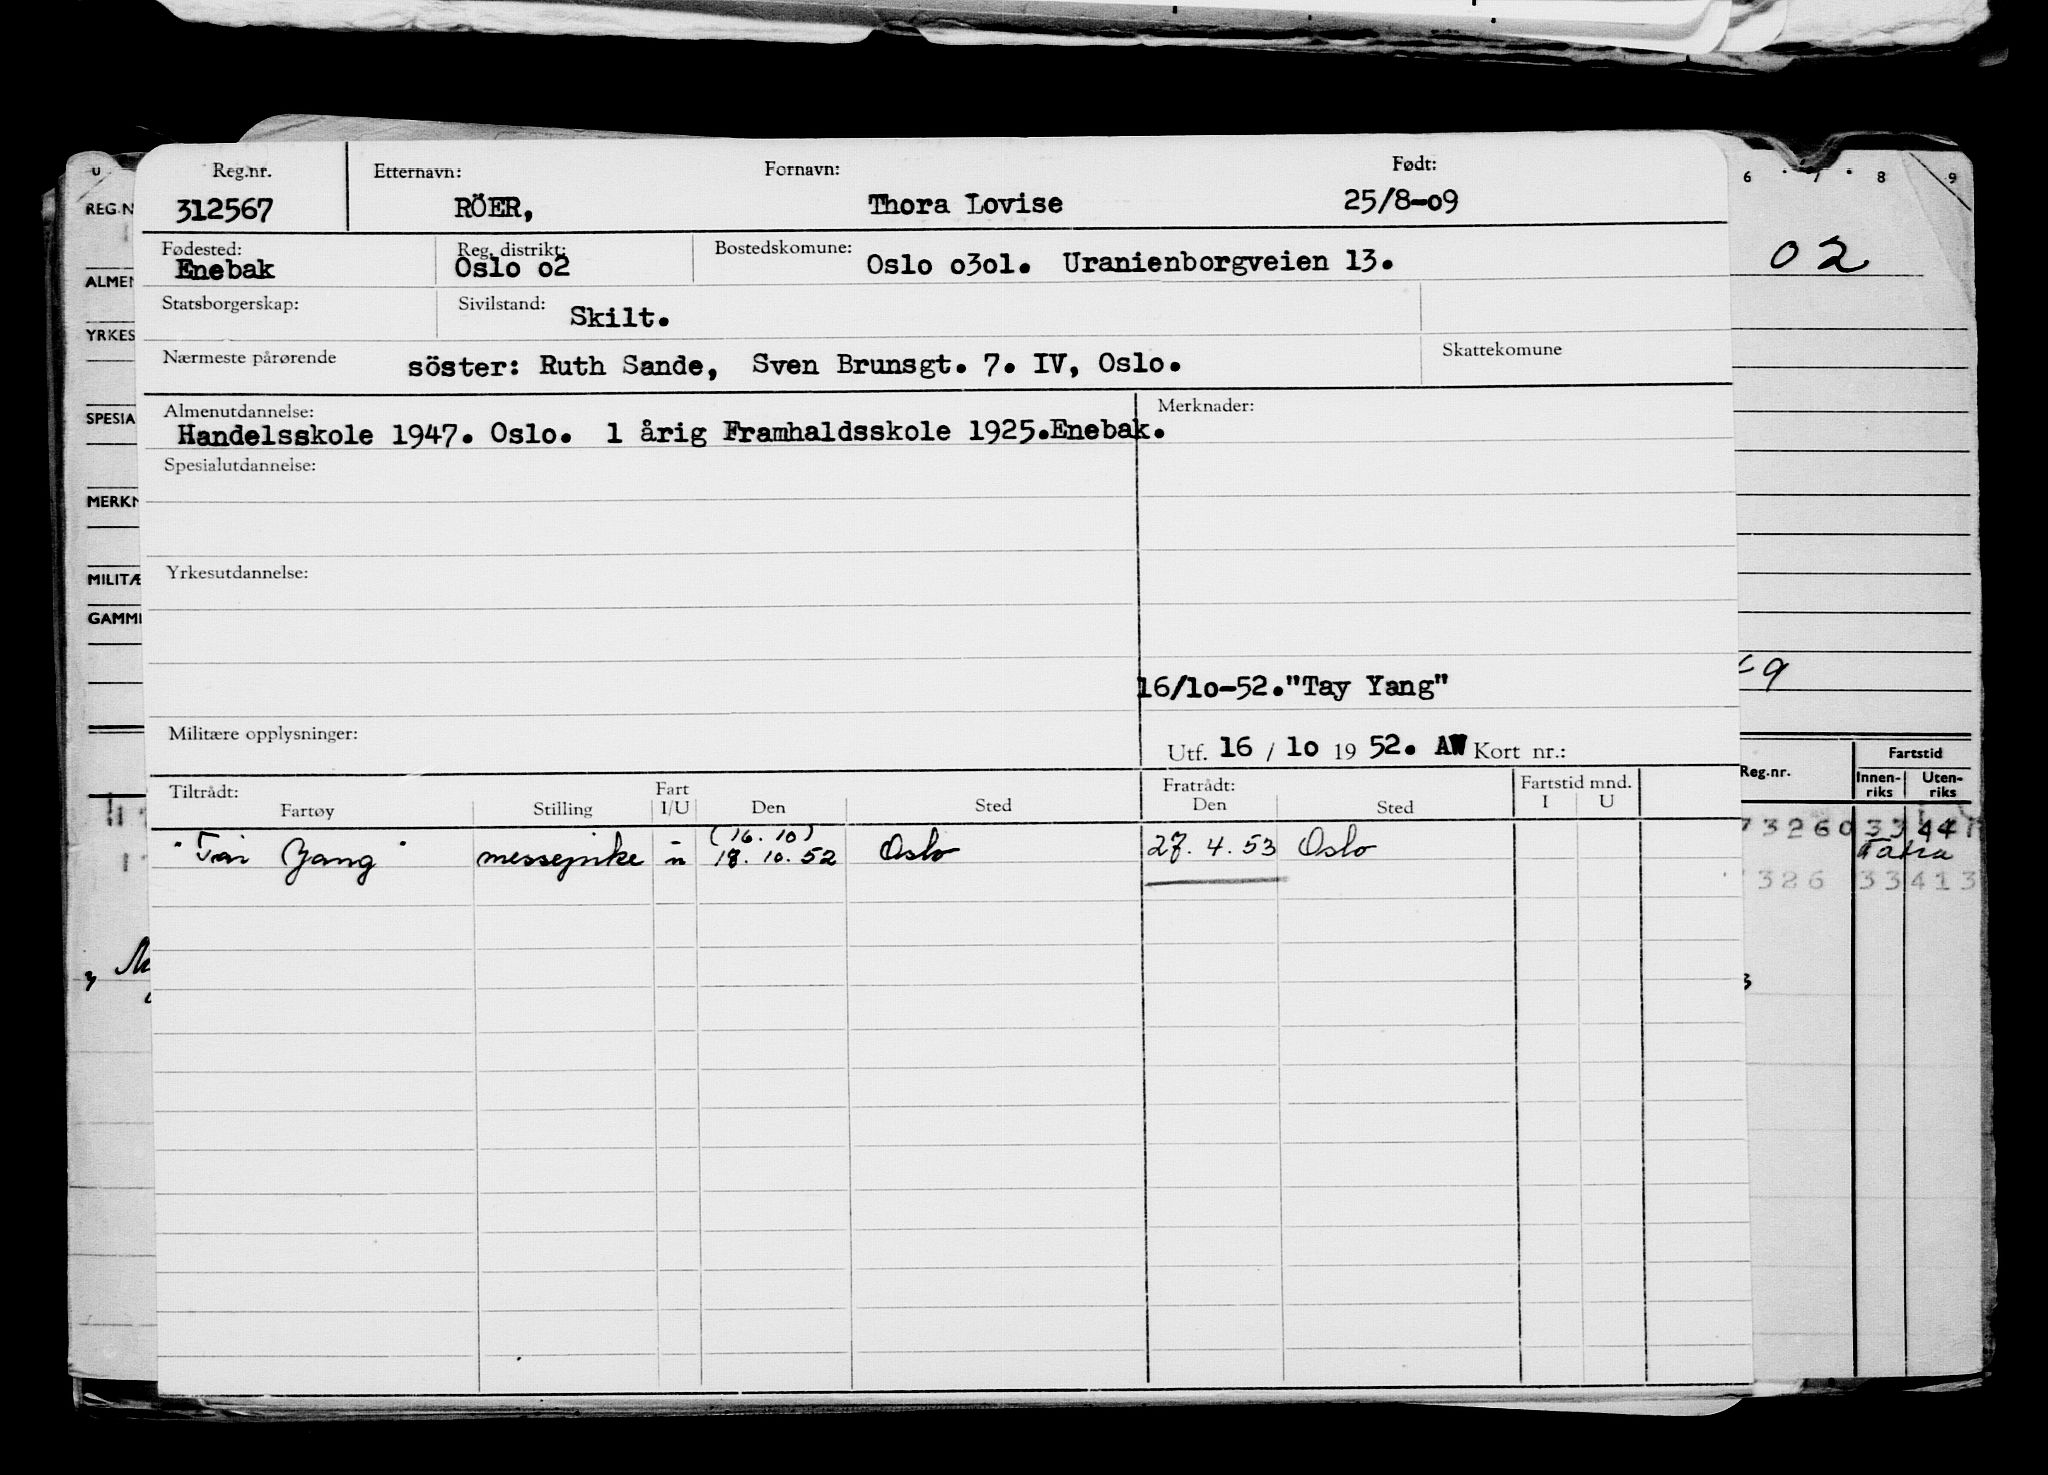 Reg.nr. Etternavn: Fornavn: Født:
312567 RÖER, Thora Lovise 25/8-o9
Fødested: Reg. distrikt: Bostedskomune:
Enebak Oslo o2 Oslo o3ol. Uranienborgveien 13.
Statsborgerskap: Sivilstand: Skilt.
Nærmeste pårørende söster: Ruth Sande, Sven Brunsgt. 7. IV, Oslo. Skattekomune
Almenutdannelse: Merknader:
Handelsskole 1947. Oslo. 1 årig Framhaldsskole 1925.Enebak.
Spesialutdannelse:
Yrkesutdannelse:
16/lo-52."Tay Yang"
Militære opplysninger:
Utf. 16 / lo 19 52. AW Kort nr.:
Tiltrådt: Fart Fratrådt: Fartstid mnd.
Fartøy Stilling I/U Den Sted Den Sted I U
(16.10)
"Tai Yang" messepike u 18.10.52 Oslo 27.4.53 Oslo
U
REG.N
ALMEN
YRKES
SPESIA
MERKN
MILITÆ
GAMME
6 7 8 9
02
9
Reg.nr. Fartstid
Innen- Uten-
riks riks
73260 33 44 1
Tatra
326 33 41 3